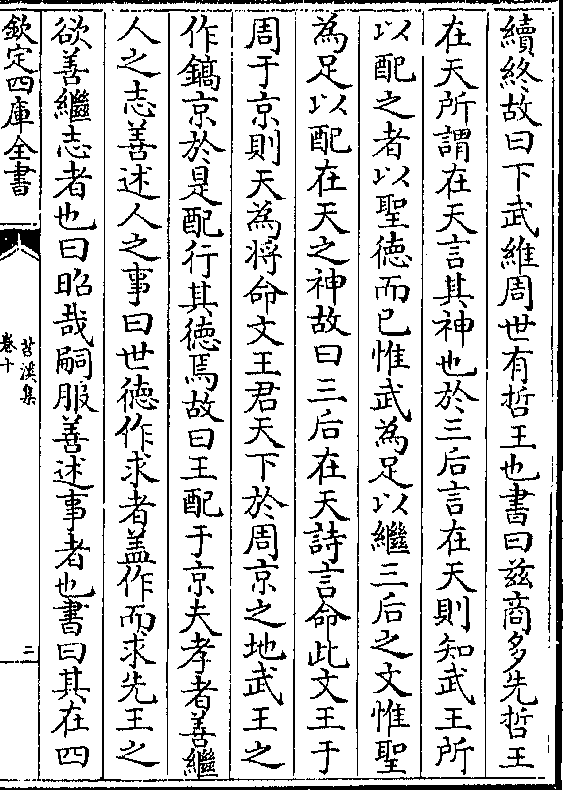 續終故曰下武維周世有哲王也書曰兹商多先哲王
在天所謂在天言其神也於三后言在天則知武王所
以配之者以聖徳而已惟武為足以繼三后之文惟聖
為足以配在天之神故曰三后在天詩言命此文王于
周于京則天為將命文王君天下於周京之地武王之
作鎬京於是配行其徳焉故曰王配于京夫孝者善繼
人之志善述人之事曰世徳作求者盖作而求先王之
欲善繼志者也曰昭哉嗣服善述事者也書曰其在四
欽定四庫全書
苕溪集
卷十
三